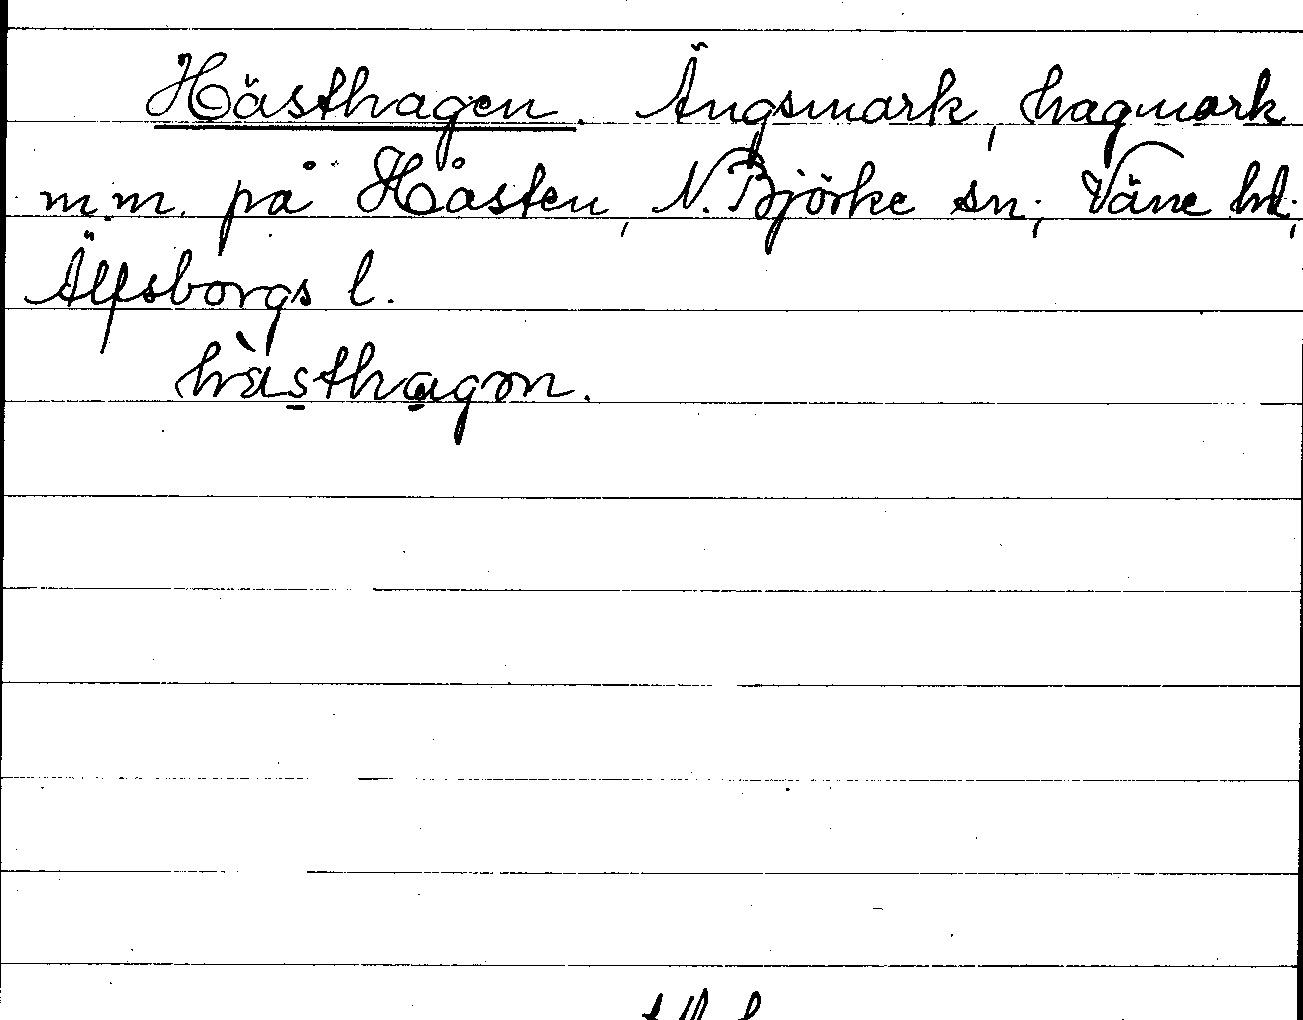 Hästhagen. Ängsmark, hagmark
m.m. på Håsten, N. Björke sn; Väne hd;
Älfsborgs l.
hàsthagən.